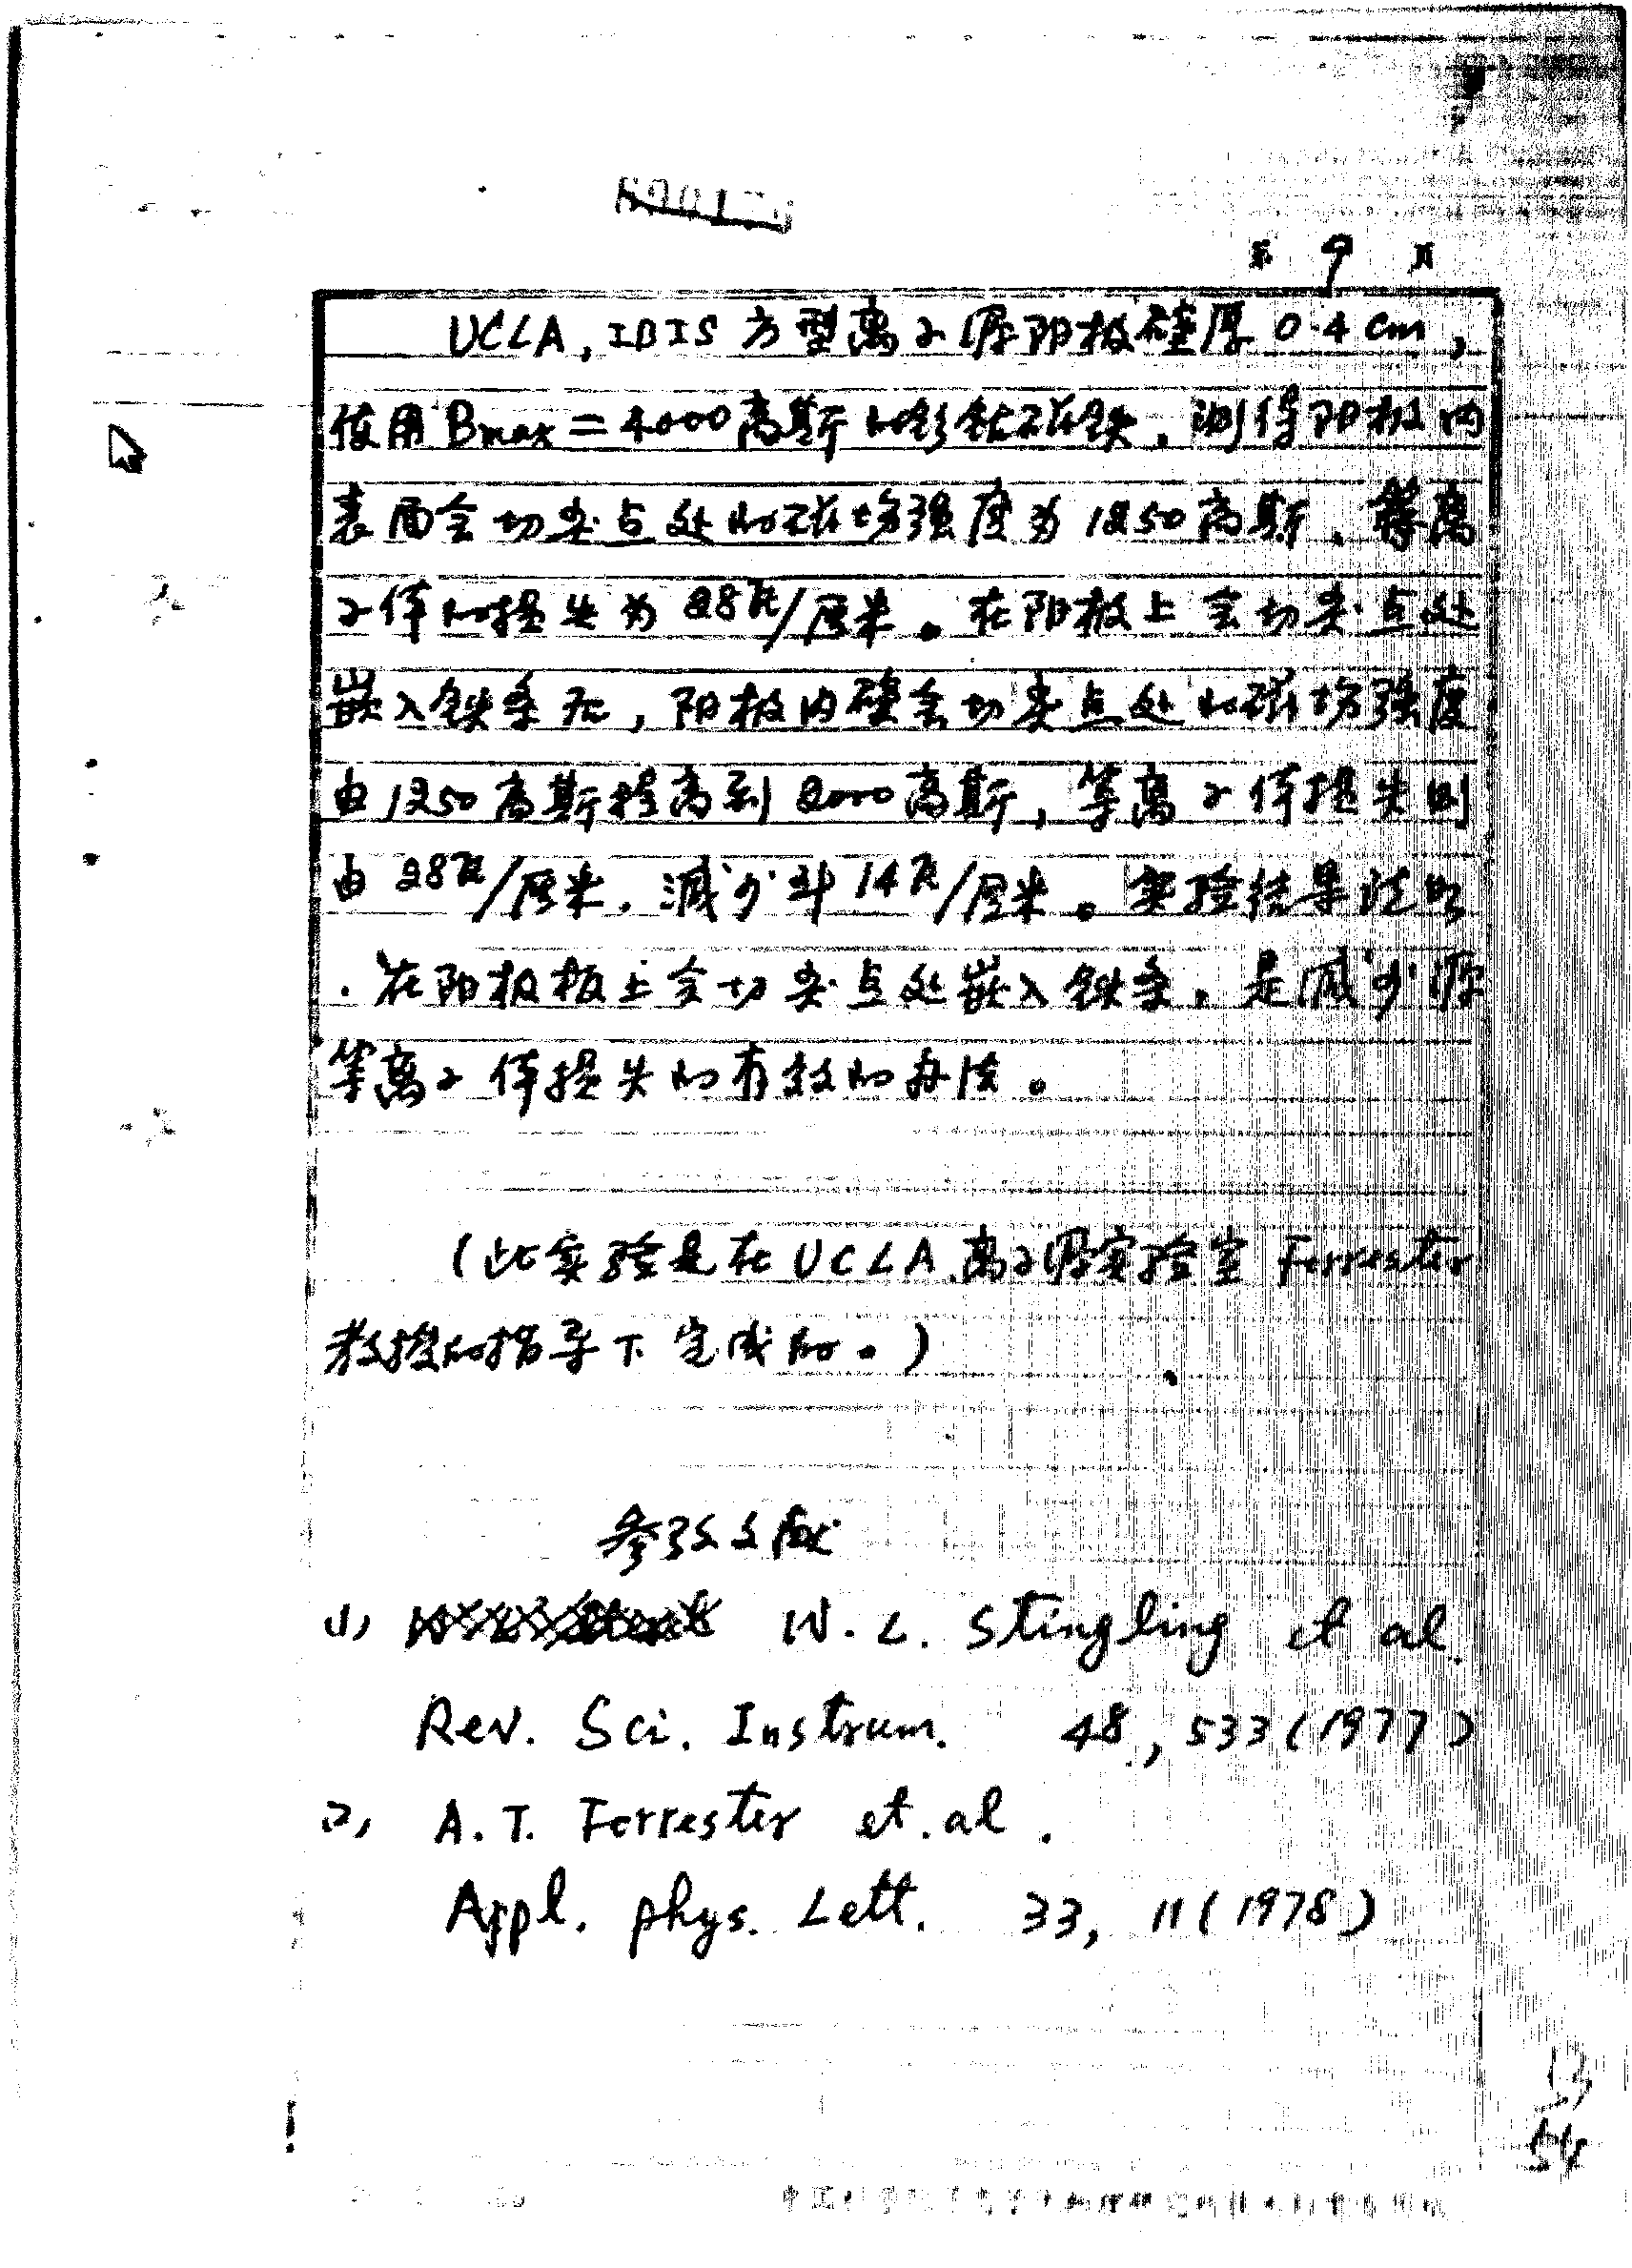 第 9 页
UCLA, IBIS 方型离子源阳极壁厚 0.4 cm,
使用 Bmax = 4000 高斯的钐钴磁铁, 测得阳极内
表面会切夹点处的磁场强度为 1250 高斯, 等离
子体的损失为 28%/厘米。在阳极上会切夹点处
嵌入铁条后, 阳极内壁会切夹点处的磁场强度
由 1250 高斯提高到 2000 高斯, 等离子体损失则
由 28%/厘米, 减少到 14%/厘米。实验结果证明
, 在阳极板上会切夹点处嵌入铁条, 是减少源
等离子体损失的有效的办法。
(此实验是在 UCLA 离子源实验室 Forrester
教授的指导下完成的。)
参考文献
1) W. L. Stingling et al.
Rev. Sci. Instrum. 48, 533 (1977)
2) A. T. Forrester et. al.
Appl. phys. Lett. 33, 11 (1978)
54